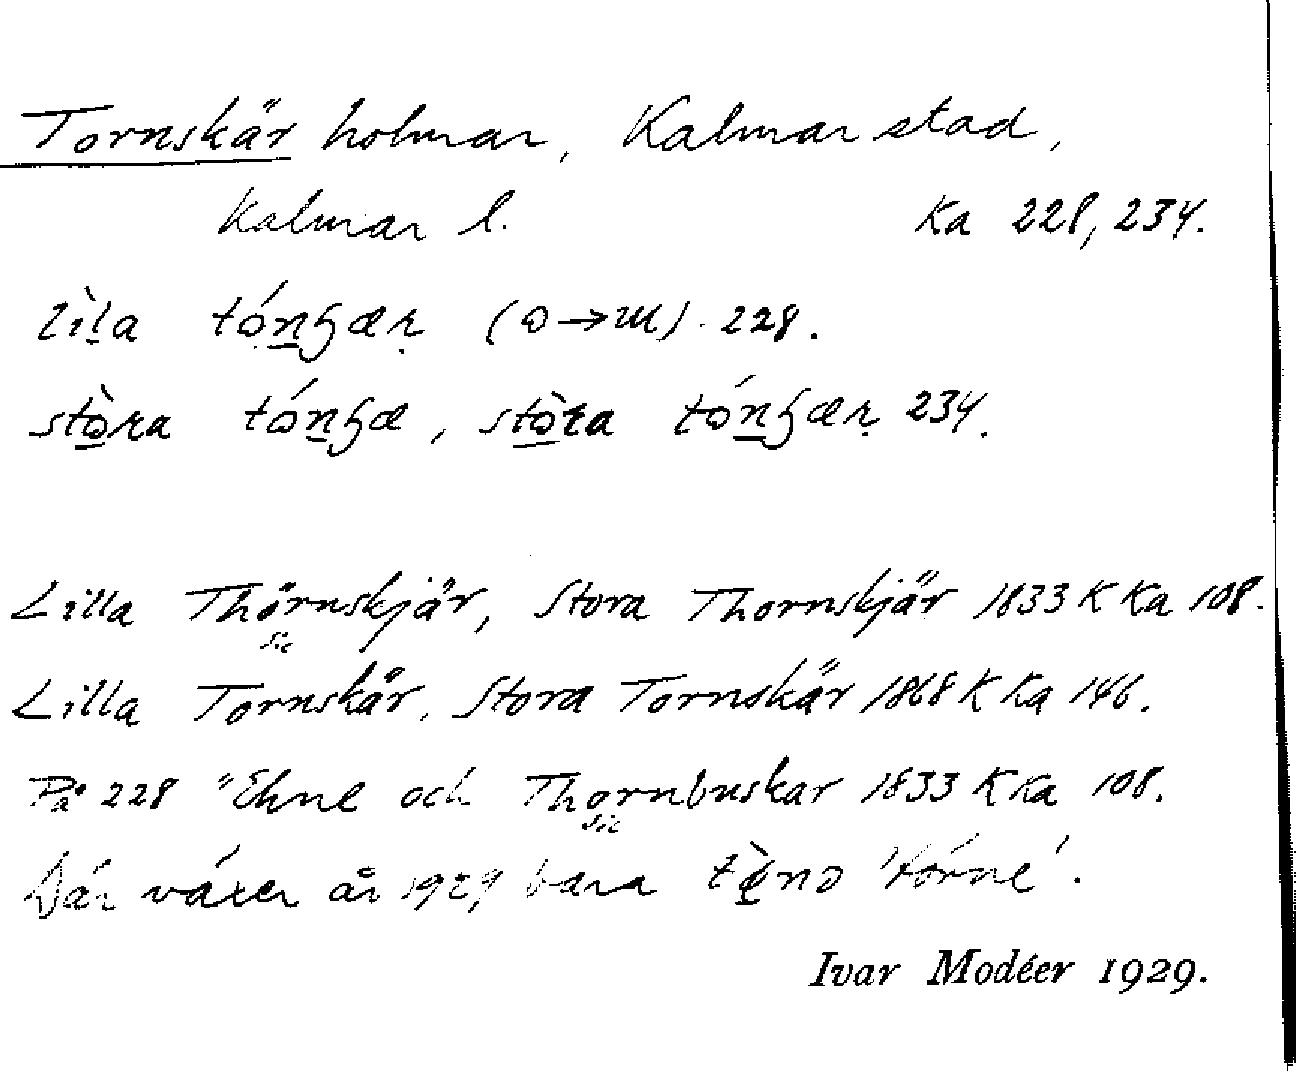 Tornskär holmar, Kalmar stad,
Kalmar l. Ka 228, 234.
lìla tónɧær 228.
stòra tónɧæ, stòra tónɧær 234.
Lilla Thörnskjär, Stora Thornskjär 1833 K Ka 108.
sic
Lilla Tornskär, Stora Tornskär 1868 K Ka 146.
På 228 "Ehne och Thornbuskar 1833 K Ka 108.
sic
Där växer år 1929 bara 'törne'.
Ivar Modéer 1929.